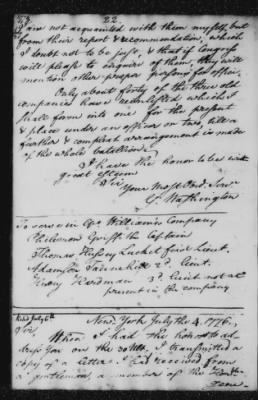 22
am not acquainted with them myself but
from their report & recommendation, which
I doubt not to be just, & that if Congress
will please to inquire of them, they will
mention other proper persons for office.
Only about forty of the three old
companies have reenlisted which I
shall form into one for the present
& place under an officer or two till a
further & compleat arrangement is made
of the whole battalion.
I have the honor to be with
great Esteem
Sir
Your Most Obd. Serv.
G. Washington
To serve in Williams's Company
Philemon Griff. the Captain
Thomas Hussey Lucket first Lieut.
Adamson Tannehill 2d. Lieut.
Henry Hardman 3d. Lieut not at
present in the company
New York July the 4. 1776.
Sir,
When I had the honor to ad-
dress you on the 30th. I transmitted a
copy of a letter I had received from
a gentleman, a member of the